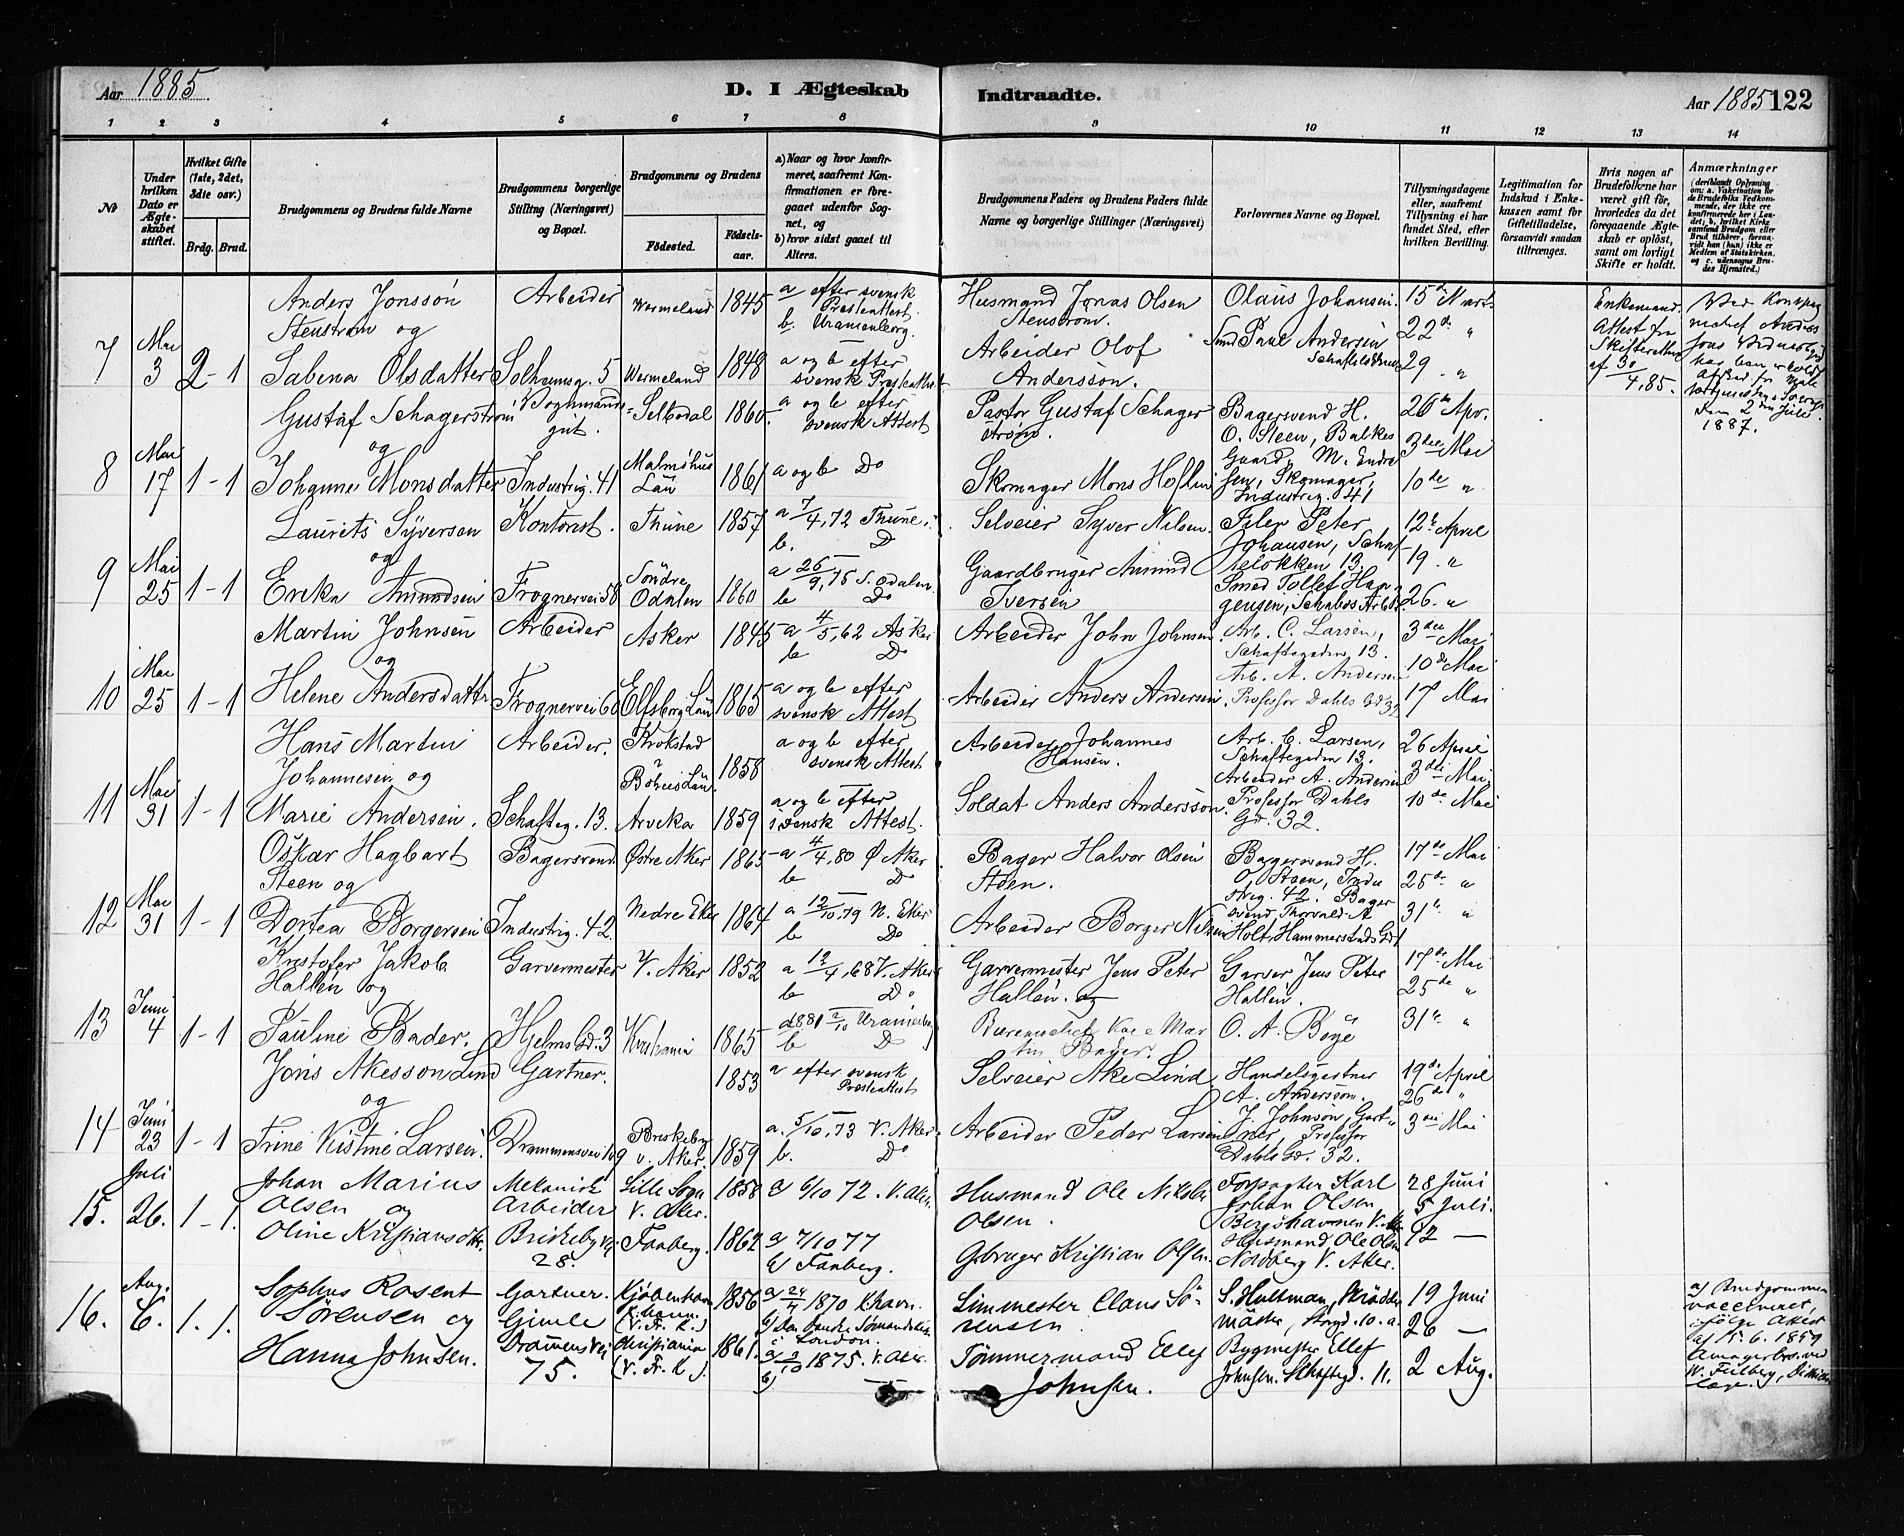 Aar 1885
D. I Ægteskab Indtraadte.
Aar 1885 122
1 2 3 4 5 6 7 8 9 10 11 12 13 14
№
Under hvilken Dato er Ægteskabet stiftet.
Hvilket Gifte (1ste, 2det, 3die osv.)
Brdg. Brud.
Brudgommens og Brudens fulde Navne
Brudgommens borgerlige Stilling (Næringsvei) og Bopæl.
Brudgommens og Brudens
Fødested.
Fødselsaar.
a) Naar og hvor konfirmeret, saafremt Konfirmationen er foregaaet udenfor Sognet, og
b) hvor sidst gaaet til Alters.
Brudgommens Faders og Brudens Faders fulde Navne og borgerlige Stillinger (Næringsvei)
Forlovernes Navne og Bopæl.
Tillysningsdagene eller, saafremt Tillysning ei har fundet Sted, efter hvilken Bevilling.
Legitimation for Indskud i Enkekassen samt for Giftetilladelse, forsaavidt saadan tiltrænges.
Hvis nogen af Brudefolkene har været gift før, hvorledes da det foregaaende Ægteskab er opløst, samt om lovligt Skifte er holdt.
Anmærkninger
7 Mai 3 2-1
Anders Jonsson Stenström og
Sabina Olsdatter
Arbeider
Solheimsg. 5
Wermeland 1845
Wermeland 1848
a efter svensk Presteattest
b. Uranienborg.
a og b efter svensk Presteattest
Husmand Jonas Olsen Stenström.
Arbeider Olof Andersson.
Olaus Johansen.
Smed Paul Andersen
15de Mart
22de "
29 "
Enkemand. Attest fra Skifteretten af 30/4, 85.
8 Mai 17 1-1
Gustaf Schagerström og
Johanne Monsdatter
Industrig. 41
Selbodal 1860
Malmöhus Län 1861
a og b efter svensk Attest
a og b Do
Pastor Gustaf Schagerström.
Skomager Mons Hoflin
Bagersvend H. O. Steen, Balkes Gaard, M. Endresen, Skomager, Industrig. 41
26de Apr.
3die Mai
10de "
9 Mai 25 1-1
Laurits Syversen og
Ereka Amundsen
Kontorist.
Frognervei 58
Thune 1857
Søndre Odalen 1860
a 7/4, 72 Thune.
b. Do
a 26/9, 75 S. Odalen
b Do
Selveier Syver Nilsen
Gaardbruger Amund Iversen
Filer Peter Johansen, Schafteløkken 13.
12te April
19 "
26. "
10 Mai 25 1-1
Martin Johnsen og
Helene Andersdattr
Arbeider
Frognervei 60
Asker 1845
Elfsborg Län 1865
a 4/5, 62 Asker
b Do
a og b efter svensk Attest
Arbeider John Johnsen
Arbeider Anders Andersen
Arb. C. Larsen, Schaftegaden 13.
Arb. A. Andersen Professor Dahls Gd 32
3die Mai
10de Mai
17 Mai
11 Mai 31 1-1
Hans Martin Johannesen og
Marie Andersen.
Arbeider.
Schafteg. 13.
Krokstad Böhus Län. 1858
Arveka 1859
a og b efter svensk Attest
a og b efter svensk Attest.
Arbeider Johannes Hansen.
Soldat Anders Andersson
Arb. C. Larsen, Schaftegaden 13.
Arbeider A. Andersen Professor Dahls Gd. 32.
26 April
3die Mai
10de Mai
12 Mai 31 1-1
Oskar Hagbart Steen og
Dortea Borgersen
Bagersvend
Industrig. 42.
Østre Aker 1865
Nedre Eker 1864
a 4/4, 80 Ø Aker
b Do
a 12/10, 79 N. Eker
b Do
Bager Halvor Olsen Steen.
Arbeider Borger Nilsen
Bagersvend H. O. Steen, Industrig. 42. Bagersvend Thorvald A Holt, Hammerstads Gd 1
17de Mai
25de "
31te "
13 Juni 4 1-1
Kristofer Jakob Hallén og
Pauline Bader.
Garvermester
Hjelms Gd. 3
V. Aker 1852
Kristiania 1865
a 12/4, 68 V. Aker
b Do
b Do
Garvermester Jens Peter Hallén. og
Garver Jens Peter Hallén.
O. A. Bøye
17de Mai
25de "
31te "
14 Juni 23 1-1
Jöns Akesson Lind og
Trine Kistine Larsen.
Gartner.
Drammensvei 109
1853
Briskeby V. Aker. 1859
a efter svensk Presteattest
a. 5/10, 73 V. Aker
b. Do
Selveier Ake Lind
Arbeider Peder Larsen
Handelsgartner A. Andersson.
J. Johnson, Gartner, Professor Dahls Gd. 32.
19de April
26de "
3die Mai
15. Juli 26. 1-1.
Johan Marius Olsen og
Oline Kristiansdtr.
Mekanisk Arbeider
Briskebyvei 28.
Lille Sogn V. Aker. 1858
Faaberg. 1862
a 6/10 72. V. Aker.
a 7/10 77
b Faaberg.
Husmand Ole Nikolai Olsen.
Gbruger Kristian Olsen.
Forpagter Karl Johan Olsen
Husmand Ole Olsen Nordberg V. Aker.
28 Juni
5 Juli.
12 —
16. Aug. 6. 1. 1.
Sophus Rosent Sørensen og
Hanna Johnsen.
Gartner. Gimle
Drammensvei 75.
Kjøbenhavn (V. Fr. K.) 1856
Christiania (V. Fr. K.) 1861.
a) 24/4 1870 Khavn.
b) Den danske Sømandskirke i London.
a) 3/10 1875. V. Aker.
b) —
Simmester Claus Sörensen
Tömmermand Ellef Johnsen.
S. Hultman, Skräddermäster, Storgd. 10. a.
Bygmester Ellef Johnsen. Schaftegd. 11.
19 Juni
26 —
2 Aug.
a) Brudgommen vaccineret, ifølge Attest af 15. 6. 1859